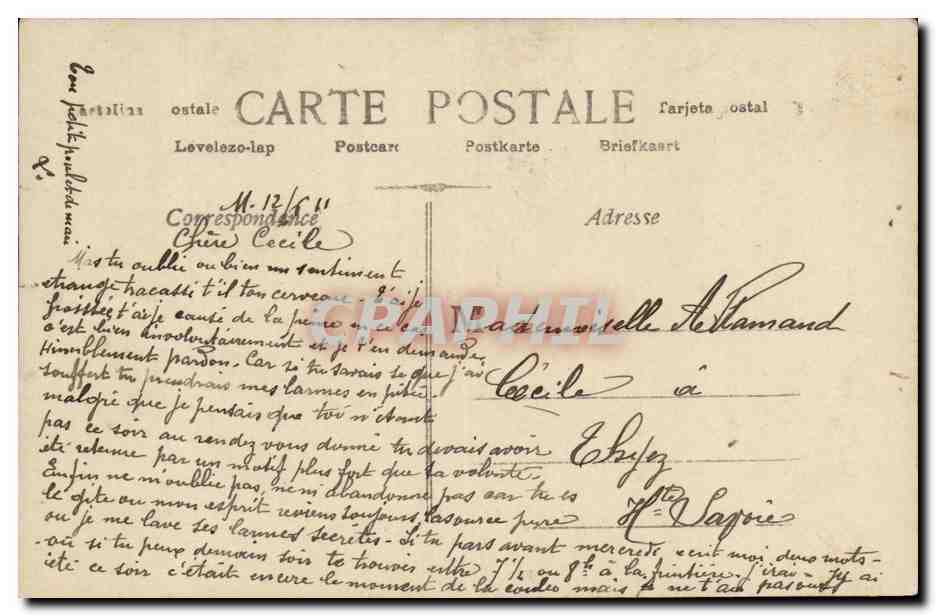 Ton petit poulet de mari
Cartolina ostale CARTE POSTALE Tarjeta ostal
Levelezo-lap Postcard Postkarte Briefkaart
M. 12/ 11
Correspondance
Adresse
Chère Cecile
Mas tu oublié ou bien un sentiment
etrange tracasse t'il ton cerveau. T'ai je
froissée t'ai je causé de la peine
c'est bien involontairement et je t'en demande
Humblement pardon. Car si tu savais se que j'ai
souffert tu prendrais mes larmes en pitié
malgré que je pensais que toi n'étant
pas ce soir au rendez vous donné tu devais avoir
été retenue par un motif plus fort que ta volonté.
Enfin ne m'oublie pas, ne m'abandonne pas car tu es
le gite ou mon esprit reviens toujours, la source pure
ou je me lave ses larmes secrétes - Si tu pars avant mercredi ecrit moi deux mots -
ou si tu peux demain soir te trouver entre 7 1/2 ou 8h à la J'irai - J'y ai
été ce soir c'était encore le moment de la mais je ne t'ai pas
Mademoiselle
Cécile à
Thyez
Hte Savoie
CPAPHIL